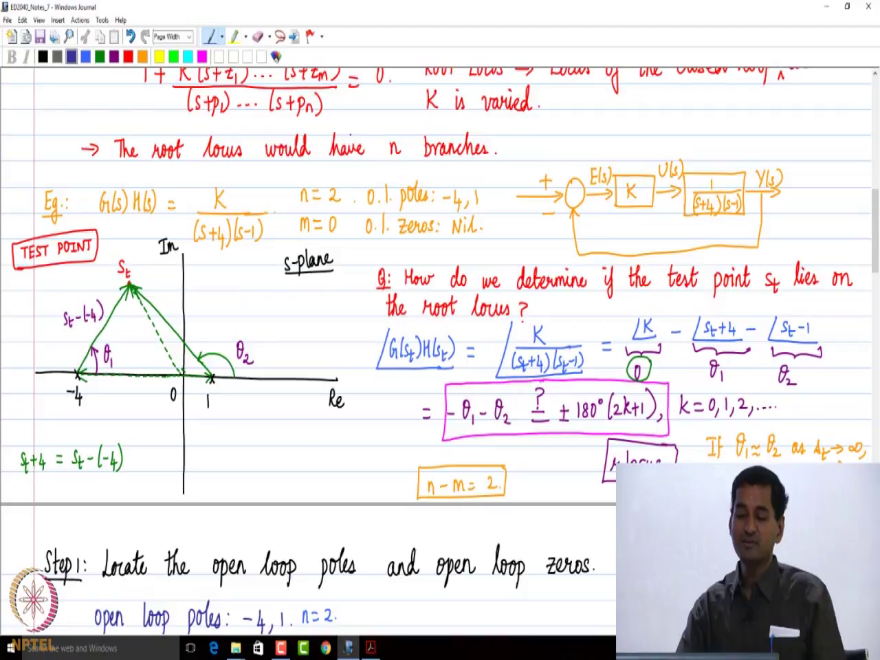 ED2040_Notes_7 - Windows Journal
File Edit View Insert Actions Tools Help
Page Width
B I
1 + K(s+z₁)...(s+zₘ) / (s+p₁)...(s+pₙ) = 0.
Root Locus → Locus of the closed loop
K is varied.
→ The root locus would have n branches.
Eg.: G(s)H(s) = K / (s+4)(s-1)
n=2 O.l. poles: -4, 1
m=0 O.l. zeros: Nil.
+ - E(s) K U(s) 1/(s+4)(s-1) Y(s)
TEST POINT
Im
s-plane
sₜ
sₜ-(-4)
θ₁
θ₂
-4 0 1 Re
sₜ+4 = sₜ-(-4)
Q: How do we determine if the test point sₜ lies on
the root locus?
∠G(sₜ)H(sₜ) = ∠K/(sₜ+4)(sₜ-1) = ∠K - ∠sₜ+4 - ∠sₜ-1
0 θ₁ θ₂
= -θ₁-θ₂ ≟ ±180°(2k+1), k=0,1,2,....
If θ₁≈θ₂ as sₜ→∞,
n-m=2.
Step 1: Locate the open loop poles and open loop zeros.
open loop poles: -4, 1. n=2.
NPTEL
Search the web and Windows